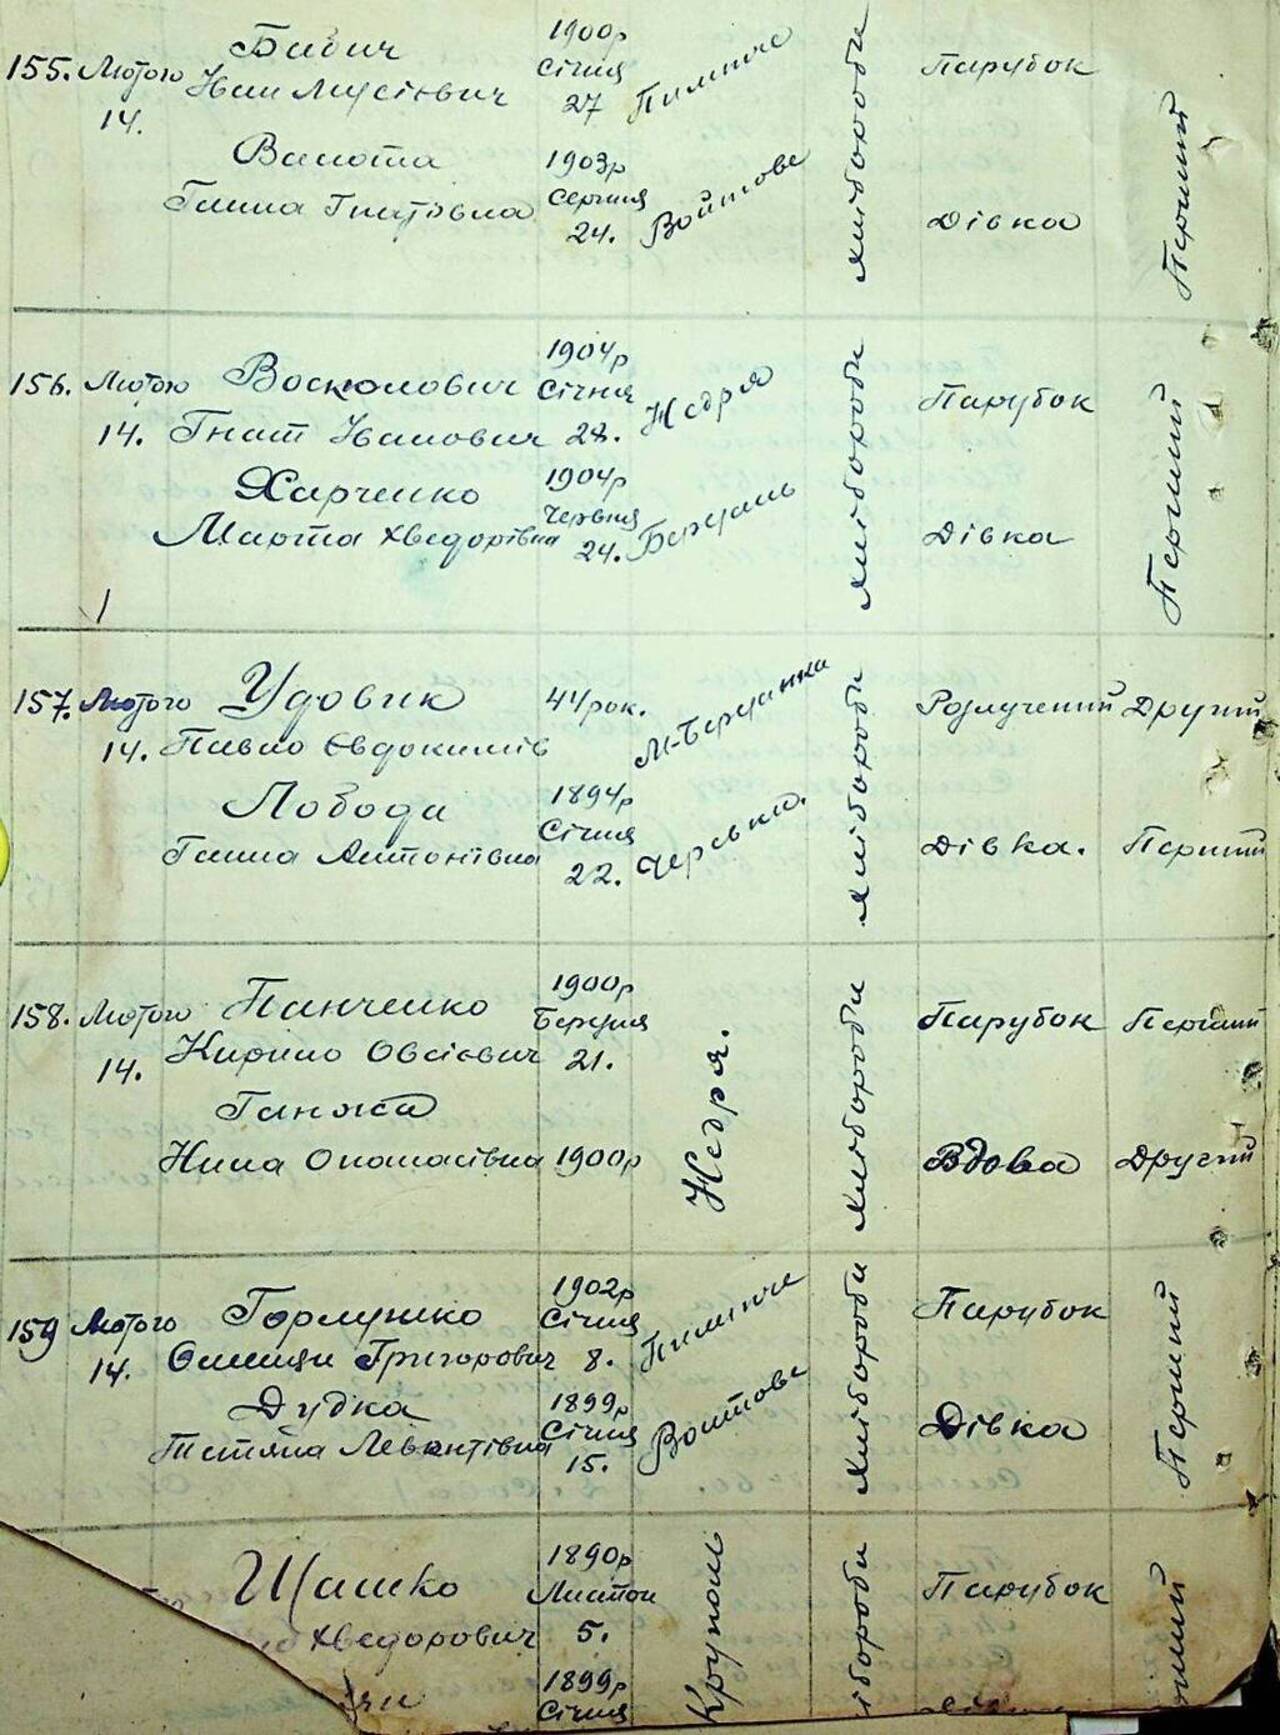 155. Лютого 14.
Бабич
Іван Мусієвич
1900р Січня 27
Пилипче
хлібороби
Парубок
Перший
Ганна Гнатівна
1903р Серпня 24.
Войтове
Дівка
156. Лютого 14.
Восколович
Гнат Іванович
1904р Січня 28.
Недря
хлібороби
Парубок
Перший
Харченко
Марта Хведорівна
1904р Червня 24.
Березань
Дівка
157. Лютого 14.
Удовик
Павло Євдокимів
44 рок.
М-Березанка
хлібороби
Розлучений
Другий
Лобода
Ганна Антонівна
1894р Січня 22.
Дівка.
Перший
158. Лютого 14.
Панченко
Кирило Овсієвич
1900р Березня 21.
Недря.
хлібороби
Парубок
Перший
Ганжа
Нина Опанасівна
1900р
Вдова
Другий
159 Лютого 14.
Горлушко
Григорович
1902р Січня 8.
Пилипче
хлібороби
Парубок
Перший
Дудка
Тетяна Левонтівна
1899р Січня 15.
Войтове
Дівка
Шашко
Хведорович
1890р Листоп 5.
Круполь
ібороби
Парубок
1899р Січня